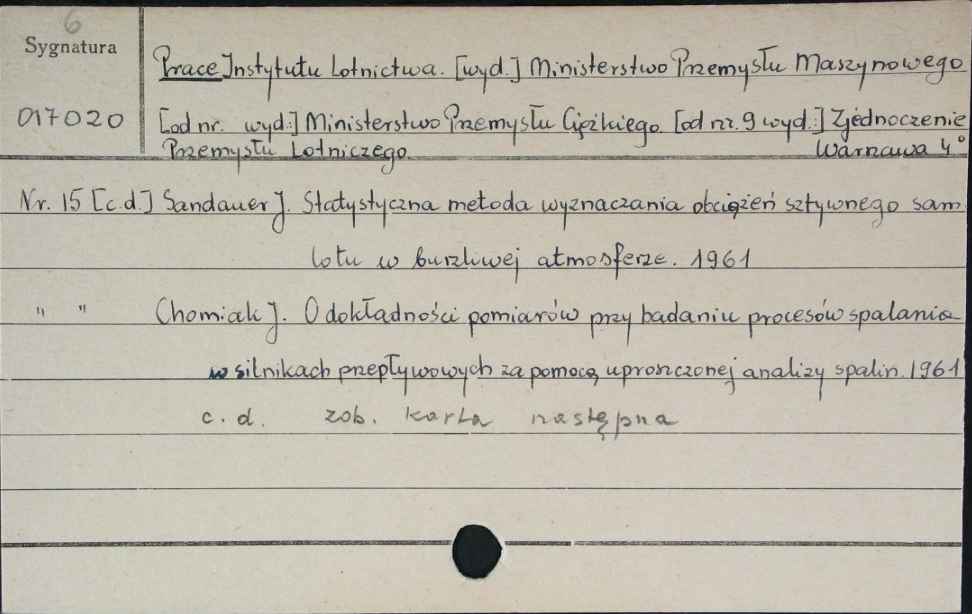 6
Sygnatura
Prace Instytutu Lotnictwa. [wyd.] Ministerstwo Przemysłu Maszynowego
017020
[od nr. wyd:] Ministerstwo Przemysłu Ciężkiego. [od nr. 9 wyd.:] Zjednoczenie
Przemysłu Lotniczego. Warszawa 4°
Nr. 15 [c.d.] Sandauer J. Statystyczna metoda wyznaczania obciążeń sztywnego samo
lotu w burzliwej atmosferze. 1961
" " Chomiak J. O dokładności pomiarów przy badaniu procesów spalania
w silnikach przepływowych za pomocą uproszczonej analizy spalin. 1961
c. d. zob. karta następna